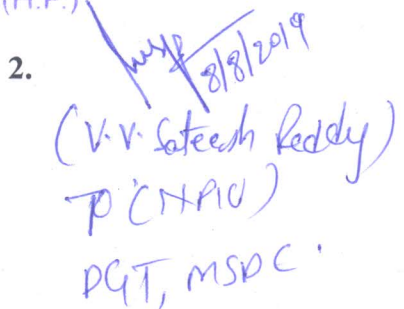 (H.P.)
2.
8/8/2019
(V.V. Sateesh Reddy)
TO (NPIU)
DGT, MSDC.